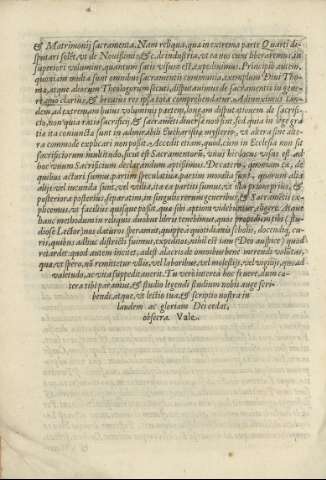 & Matrimonij sacramenta. Nam reliqua, quæ in extrema parte Quarti di-
sputari solet, vt de Nouissimis &c. de industria, vt ea nos cum liberaremus, in
superiori volumine, quantum satis visum est, expediuimus. Principio autem,
quoniam multa sunt omnibus sacramentis communia, exemplum Diui Tho-
mæ, atque aliorum Theologorum secuti, disputauimus de sacramentis in gene-
re, quo clarius, & breuius res ipsa tota comprehendatur. Adiunximus
dem ad extremam huius voluminis partem, longam disputationem de sacrifi-
cio, non quia ratio sacrificij, & sacramenti diuersæ non sint, sed quia in lege gra-
tiæ ita coniuncta sunt in admirabili Eucharistiæ mysterio, vt altera sine alte-
ra commode explicari non possit. Accedit etiam, quod, cum in Ecclesia non sit
sacrificiorum multitudo, sicut est Sacramentorum, vnus hic locus visus est ad
hoc vnum Sacrificium declarandum aptissimus. De cætero, quoniam ea, de
quibus acturi sumus partim speculatiua, partim moralia sunt, quorum alia
alijs vel iucunda sunt, vel vtilia, ita ea partiti sumus, vt illa priori prius, &
posteriora posterius, separatim, in singulis rerum generibus, & Sacramentis ex-
plicemus, vt facilius quisque possit, quæ sibi aptiora videbuntur eligere. Atque
hanc methodum in reliquis duobus libris tenebimus, quos propediem tibi (stu-
diose Lector) nos daturos speramus, quippe a quotidianis scholis, docendique, cu-
ris, quibus adhuc districti fuimus, expeditos, nihil est iam (Deo auspice) quod
retardet: quod autem incitet, adest alacris de omnibus bene merendi voluntas,
quæ, vt spero, nunquam remittetur vllis, vel laboribus, vel molestijs, vel vigilijs, quoad
valetudo, ac vita suppeditauerit. Tu vero interea hoc fruere, dum cæ-
tera tibi paramus, & studio legendi studium nobis auge scri-
bendi, atque, vt lectio tua, & scriptio nostra in
laudem ac gloriam Dei cedat,
obsecra Vale.